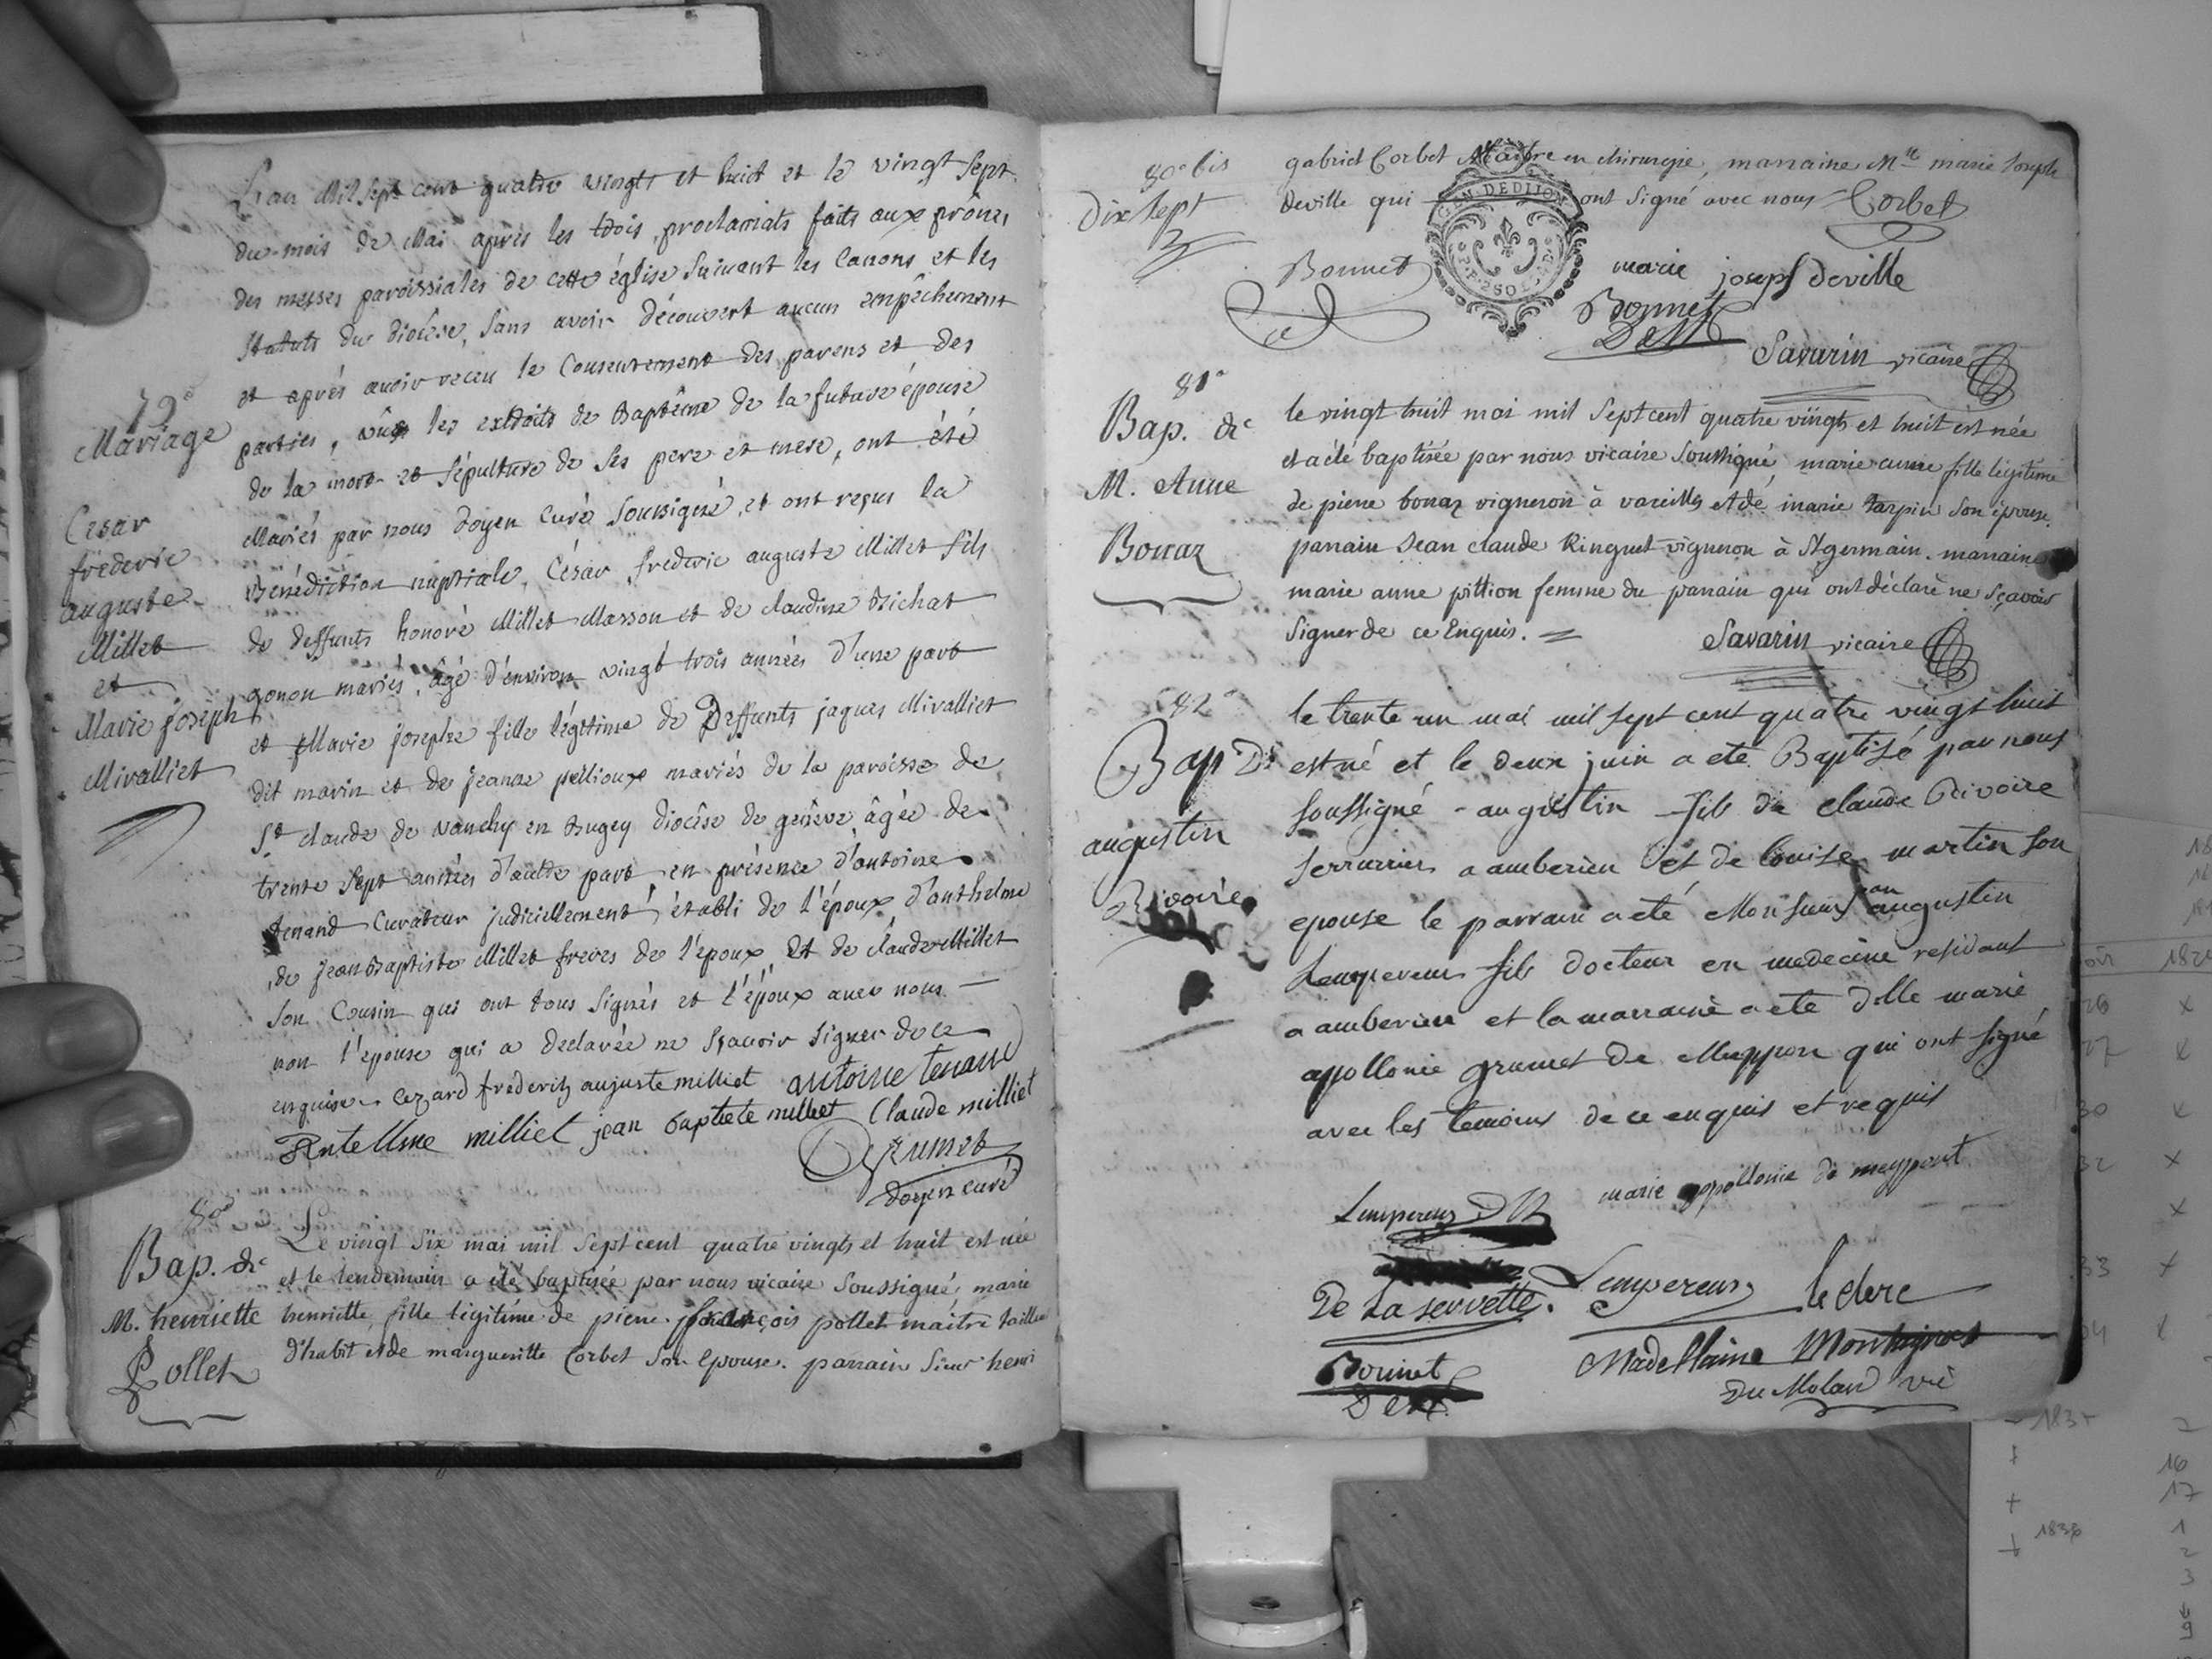 79e
Mariage
Cesar
fréderic
auguste
Millet
et
Marie joseph
Mivalliet
L'an Mil sept cent quatre vingts et huit et le vingt sept
du mois de Mai après les trois proclamats faits aux prônes
des messes paroissiales de cette église suivant les Canons et les
statuts du diocèse, sans avoir découvert aucun empêchement
et après avoir receu le Consentement des parens et des
parties, vûs les extraits de Baptême de la future épouse
de la mort et sépulture de ses pere et mere, ont été
Mariés par nous doyen Curé soussigné, et ont reçus la
Bénédiction nuptiale, César frederic auguste Millet fils
de deffunts honoré Millet Masson et de claudine Richat
gonon mariés, âgé d'environ vingt trois années d'une part
et Marie josephe fille légitime de Deffunts jaques Mivalliet
dit marin et de jeanne pellioux mariés de la paroisse de
St claude de vanchy en Bugey diocèse de genève âgée de
trente sept années d'autre part en présence d'antoine
tenand Curateur judiciellement établi de l'époux, d'anthelme
de jean Baptiste Millet freres de l'époux et de claude Millet
son Cousin qui ont tous signés et l'époux avec nous
non l'épouse qui a declarée ne sçavoir signer de ce
enquise. cezard frederih aujuste milliet antoine tenand
Antellme milliet jean baptiste milliet Claude milliet
Grumet
doyen curé
80e
Bap. de
M. henriette
Pollet
Le vingt six mai mil sept cent quatre vingts et huit est née
et le lendemain a été baptisée par nous vicaire soussigné, marie
henriette, fille légitime de pierre françois pollet maitre tailleur
d'habit et de margueritte Corbet son epouse. parrain sieur henri
80e bis
dix sept
gabriel Corbet Maitre en chirurgie, marraine Mlle marie Joseph
deville qui ont signé avec nous Corbet
GEN. DE DIJON
Bonnet
marie joseph deville
Bonnet
Savarin vicaire
81e
Bap. de
M. Anne
Bouaz
le vingt huit mai mil sept cent quatre vingts et huit est née
et a été baptisée par nous vicaire soussigné marie anne fille légitime
de pierre bouaz vigneron à vareilles et de marie tarpin son épouse.
parrain Jean claude Ringuet vigneron à St germain. marraine
marie anne pittion femme du parrain qui ont déclaré ne sçavoir
signer de ce Enquis.
Savarin vicaire
82e
Bap De
augustin
Rivoire
le trente un mai mil sept cent quatre vingt huit
est né et le deux juin a eté Baptisé par nous
soussigné augustin fils de claude Rivoire
serrurier a amberieu et de louise martin son
epouse le parrain a eté Monsieur jan augustin
Lempereur fils docteur en medecine residant
a amberieu et la marraine a eté dlle marie
apollonie grumet de Meyppon qui ont signé
avec les temoins de ce enquis et requis
marie appollonie de meyppont
Lempereur
De La servette. Lempereur leclerc
Bonnet
Madellaine Montagnat
Du Molard vic